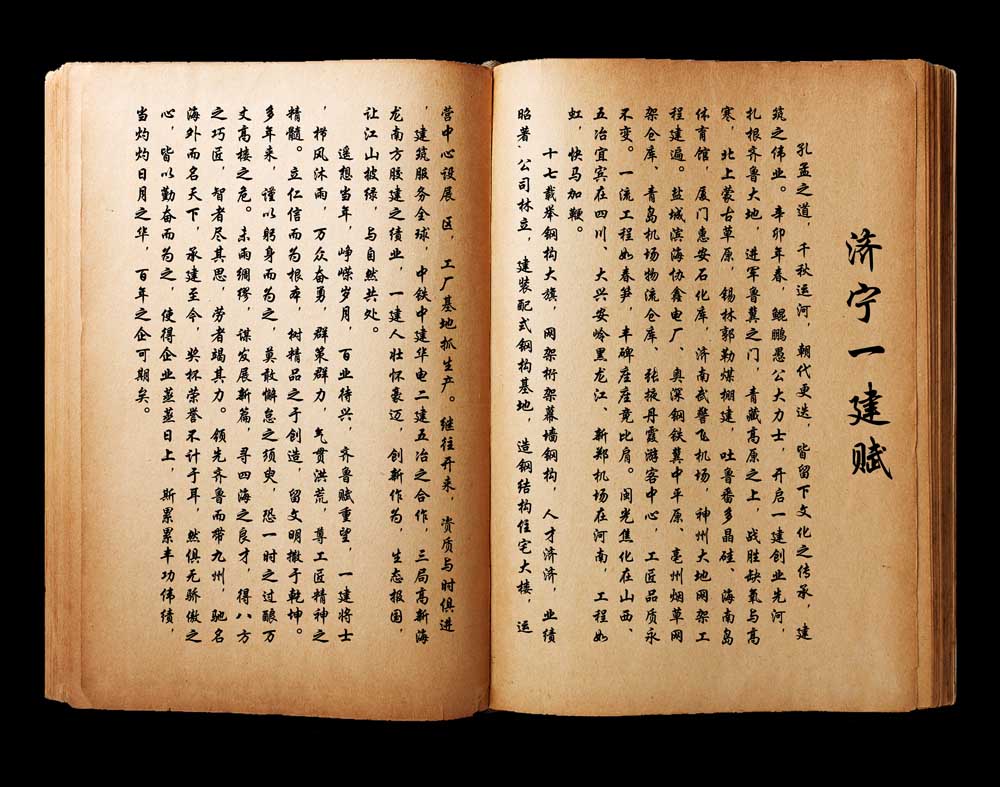 济宁一建赋
孔孟之道，千秋运河，朝代更迭，皆留下文化之传承，建
筑之伟业。辛卯年春，鲲鹏愚公大力士，开启一建创业先河，
扎根齐鲁大地，进军鲁冀之门，青藏高原之上，战胜缺氧与高
寒，北上蒙古草原，锡林郭勒煤棚建，吐鲁番多晶硅、海南岛
体育馆，厦门惠安石化库，济南武警飞机场，神州大地网架工
程建遍。盐城滨海协鑫电厂、奥深钢铁冀中平原、亳州烟草网
架仓库、青岛机场物流仓库、张掖丹霞游客中心，工匠品质永
不变。一流工程如春笋，丰碑座座竞比肩。闽光焦化在山西、
五冶宜宾在四川、大兴安岭黑龙江、新郑机场在河南，工程如
虹，快马加鞭。
十七载举钢构大旗，网架桁架幕墙钢构，人才济济，业绩
昭著，公司林立，建装配式钢构基地，造钢结构住宅大楼，运
营中心设展 区，工厂基地抓生产。继往开来，资质与时俱进
，建筑服务全球，中铁中建华电二建五冶之合作，三局高新海
龙南方胶建之绩业，一建人壮怀豪迈，创新作为，生态报国，
让江山披绿，与自然共处。
遥想当年，峥嵘岁月，百业待兴，齐鲁赋重望，一建将士
，栉风沐雨，万众奋勇，群策群力，气贯洪荒，尊工匠精神之
精髓。立仁信而为根本，树精品之于创造，留文明撒于乾坤。
多年来，谨以躬身而为之，莫敢懈怠之须臾，恐一时之过酿万
丈高楼之危。未雨绸缪，谋发展新篇，寻四海之良才，得八方
之巧匠，智者尽其思，劳者竭其力。领先齐鲁而带九州，驰名
海外而名天下，承建至今，奖杯荣誉不计于耳，然俱无骄傲之
心，皆以勤奋而为之，使得企业蒸蒸日上，斯累累丰功伟绩，
当灼灼日月之华，百年之企可期矣。